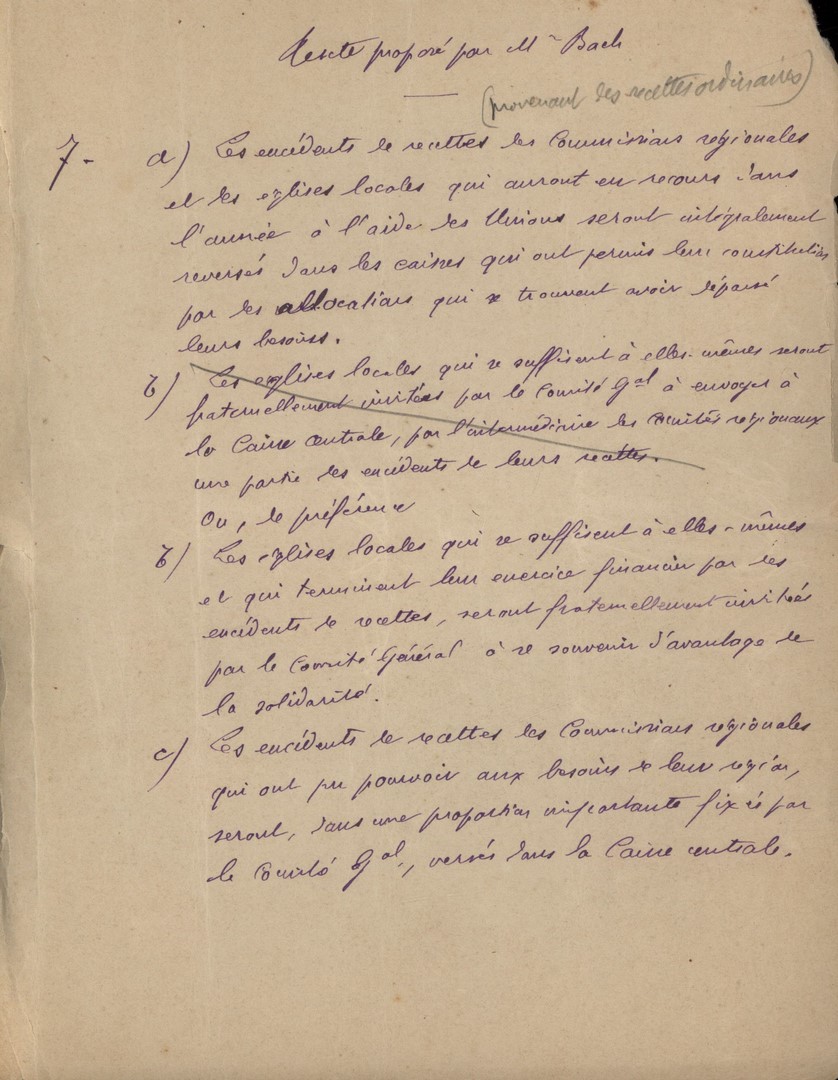 Texte proposé par Mr Bach
(provenant des recettes ordinaires)
7- a) Les excédents de recettes des Commissions régionales
et des églises locales qui auront eu recours dans
l'année à l'aide des Unions seront intégralement
reversés dans les caisses qui ont permis leur constitution
par des allocations qui se trouvent avoir dépassé
leurs besoins.
b) Les églises locales qui se suffisent à elles-mêmes seront
fraternellement invitées par le Comité Gal à envoyer à
la Caisse Centrale, par l'intermédiaire des comités régionaux
une partie des excédents de leurs recettes.
Ou, de préférence
b) Les églises locales qui se suffisent à elles-mêmes
et qui terminent leur exercice financier par des
excédents de recettes, seront fraternellement invitées
par le Comité Général à se souvenir d'avantage de
la solidarité.
c) Les excédents de recettes des Commissions régionales
qui ont pu pourvoir aux besoins de leur région,
seront, dans une proportion importante fixée par
le Comité Gal, versés dans la Caisse centrale.